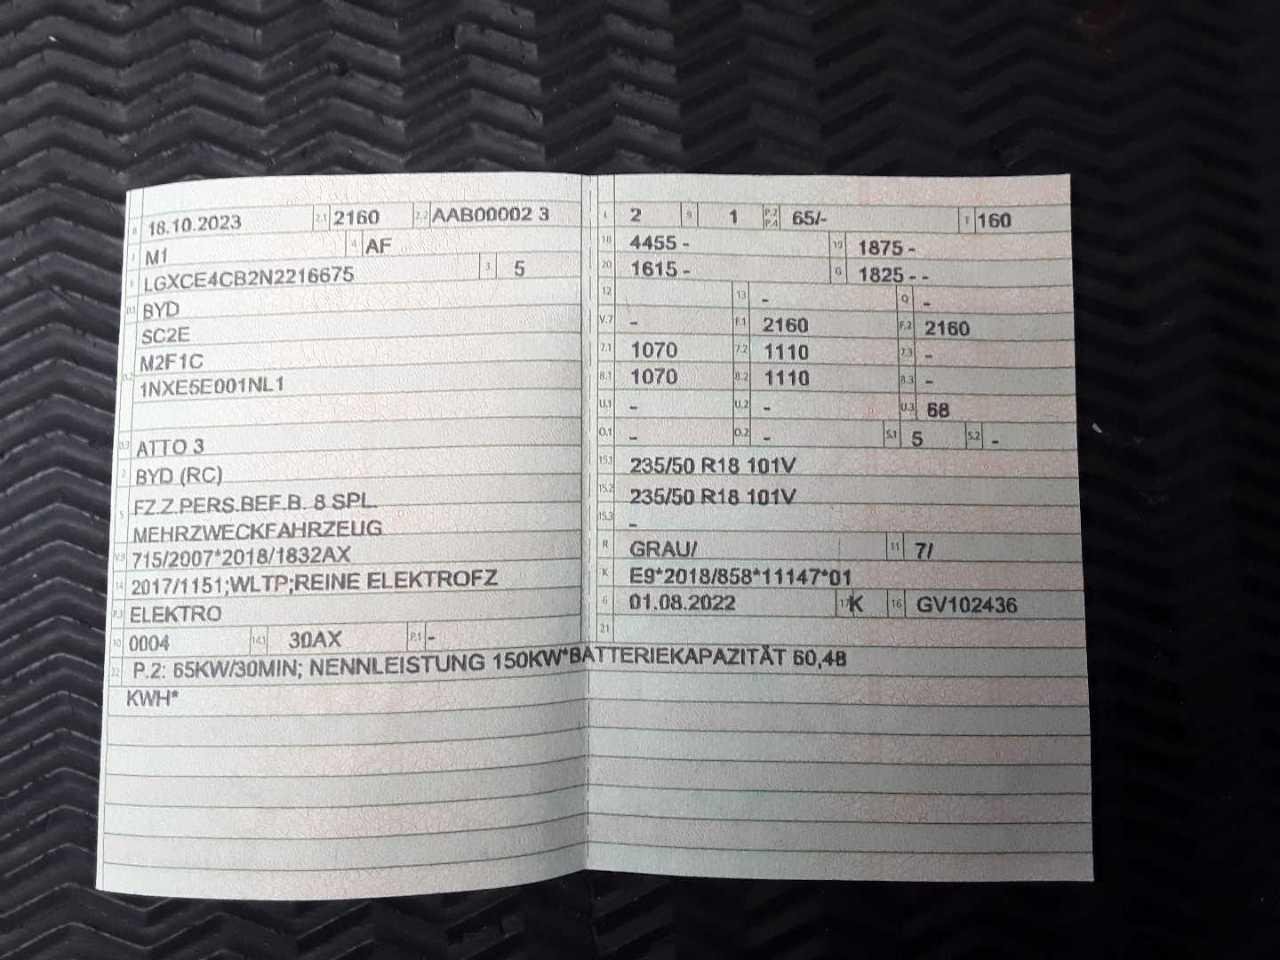 B 18.10.2023 2.1 2160 2.2 AAB00002 3
J M1 4 AF
E LGXCE4CB2N2216675 3 5
D.1 BYD
SC2E
D.2 M2F1C
1NXE5E001NL1
D.3 ATTO 3
2 BYD (RC)
5 FZ.Z.PERS.BEF.B. 8 SPL.
MEHRZWECKFAHRZEUG
V.9 715/2007*2018/1832AX
14 2017/1151;WLTP;REINE ELEKTROFZ
P.3 ELEKTRO
10 0004 14.1 30AX P.1 -
22 P.2: 65KW/30MIN; NENNLEISTUNG 150KW*BATTERIEKAPAZITÄT 60,48
KWH*
L 2 9 1 P.2 P.4 65/- T 160
18 4455 - 19 1875 -
20 1615 - G 1825 - -
12 13 - Q -
V.7 - F.1 2160 F.2 2160
7.1 1070 7.2 1110 7.3 -
8.1 1070 8.2 1110 8.3 -
U.1 - U.2 - U.3 68
O.1 - O.2 - S.1 5 S.2 -
15.1 235/50 R18 101V
15.2 235/50 R18 101V
15.3 -
R GRAU/ 11 7/
K E9*2018/858*11147*01
6 01.08.2022 17 K 16 GV102436
21